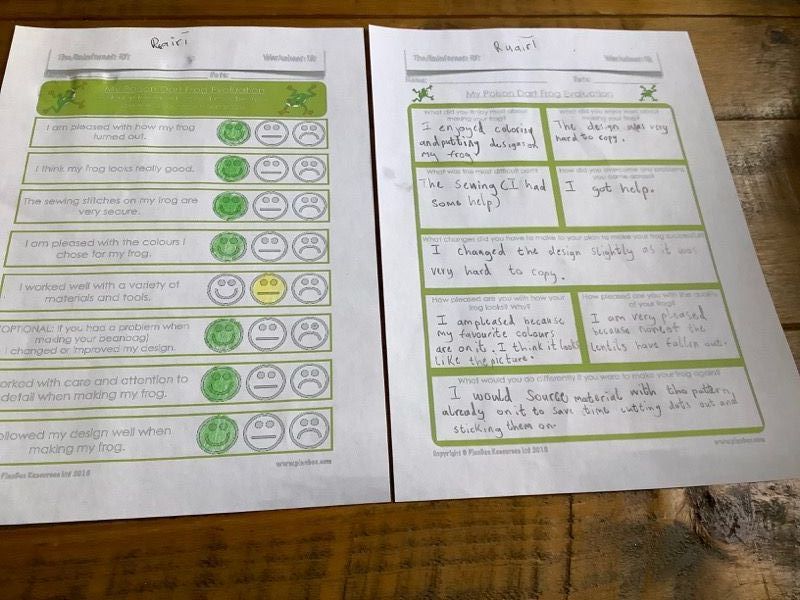 Ruairi
The Rainforest: Art
Worksheet 1B
Date:
My Poison Dart Frog Evaluation
I am pleased with how my frog
turned out.
I think my frog looks really good.
The sewing stitches on my frog are
very secure.
I am pleased with the colours I
chose for my frog.
I worked well with a variety of
materials and tools.
OPTIONAL: If you had a problem when
making your beanbag)
I changed or improved my design.
orked with care and attention to
detail when making my frog.
ollowed my design well when
making my frog.
PlanBee Resources Ltd 2016
www.planbee.com
Ruairi
The Rainforest: Art
Name:
Date:
My Poison Dart Frog Evaluation
What did you enjoy most about
making your frog?
I enjoyed coloring
and putting designs on
my frog.
What did you enjoy least about
making your frog?
The design was very
hard to copy.
What was the most difficult part?
The sewing (I had
some help)
How did you overcome any problems
you came across?
I got help.
What changes did you have to make to your plan to make your frog successful?
I changed the design slightly as it was
very hard to copy.
How pleased are you with how your
frog looks? Why?
I am pleased because
my favourite colours
are on it. I think it looks
like the picture.
How pleased are you with the quality
of your frog?
I am very pleased
because none of the
lentils have fallen out.
What would you do differently if you were to make your frog again?
I would source material with the pattern
already on it to save time cutting dots out and
sticking them on.
Copyright © PlanBee Resources Ltd 2016
www.planbee.com